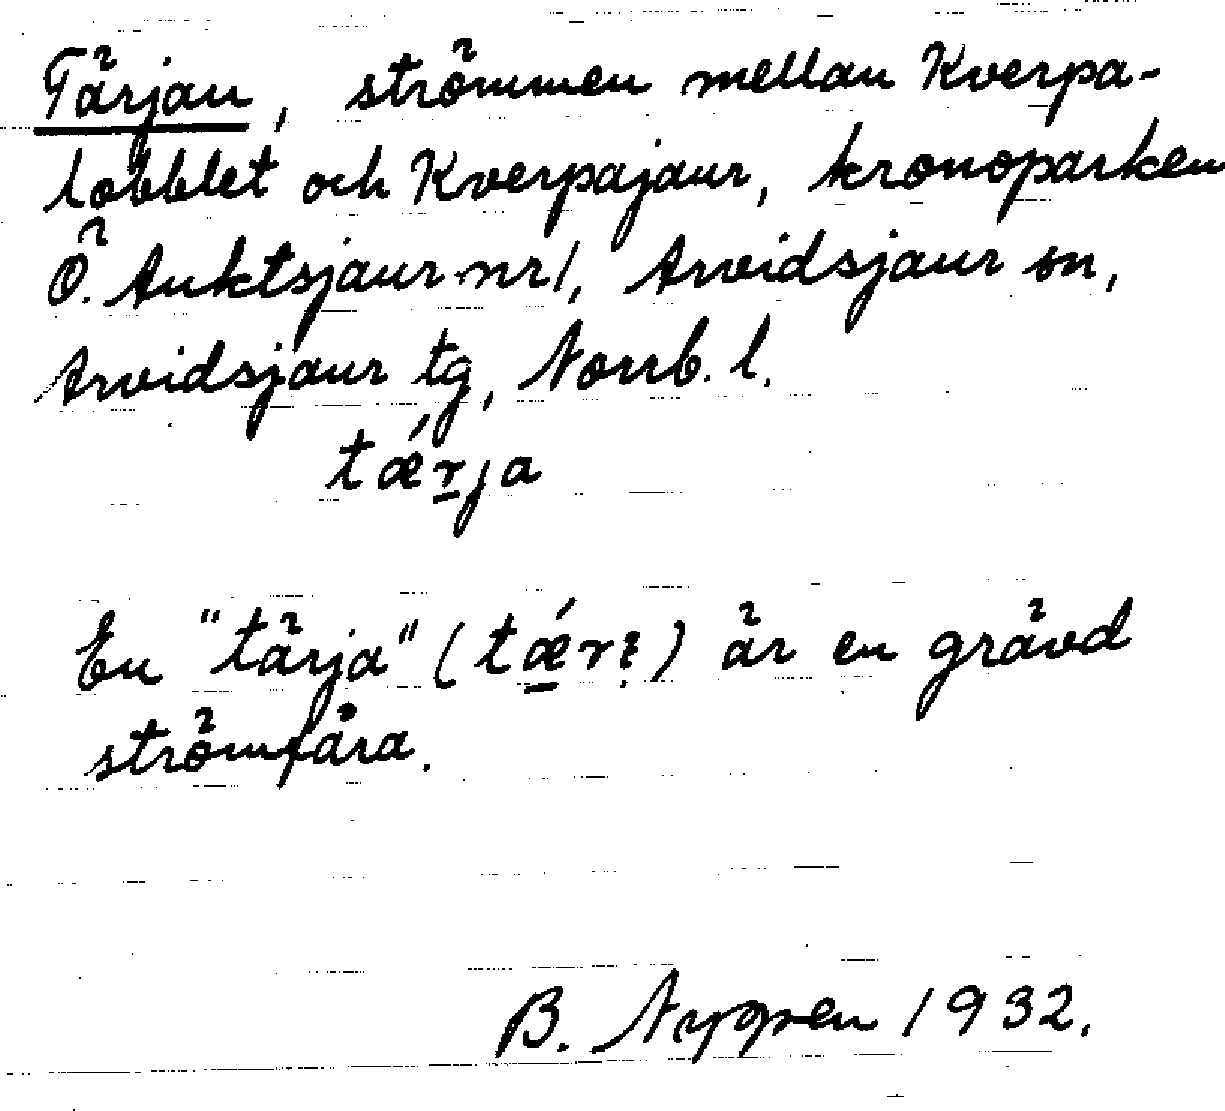 Tärjan, strömmen mellan Kverpa-
lobblet och Kverpajaur, kronoparken
Ö. Auktsjaur nr 1, Arvidsjaur sn,
Arvidsjaur tg, Norrb. l.
tǽr̲ja
En "tärja" (tǽ̲r) är en grävd
strömfåra.
B. Nygren 1932.